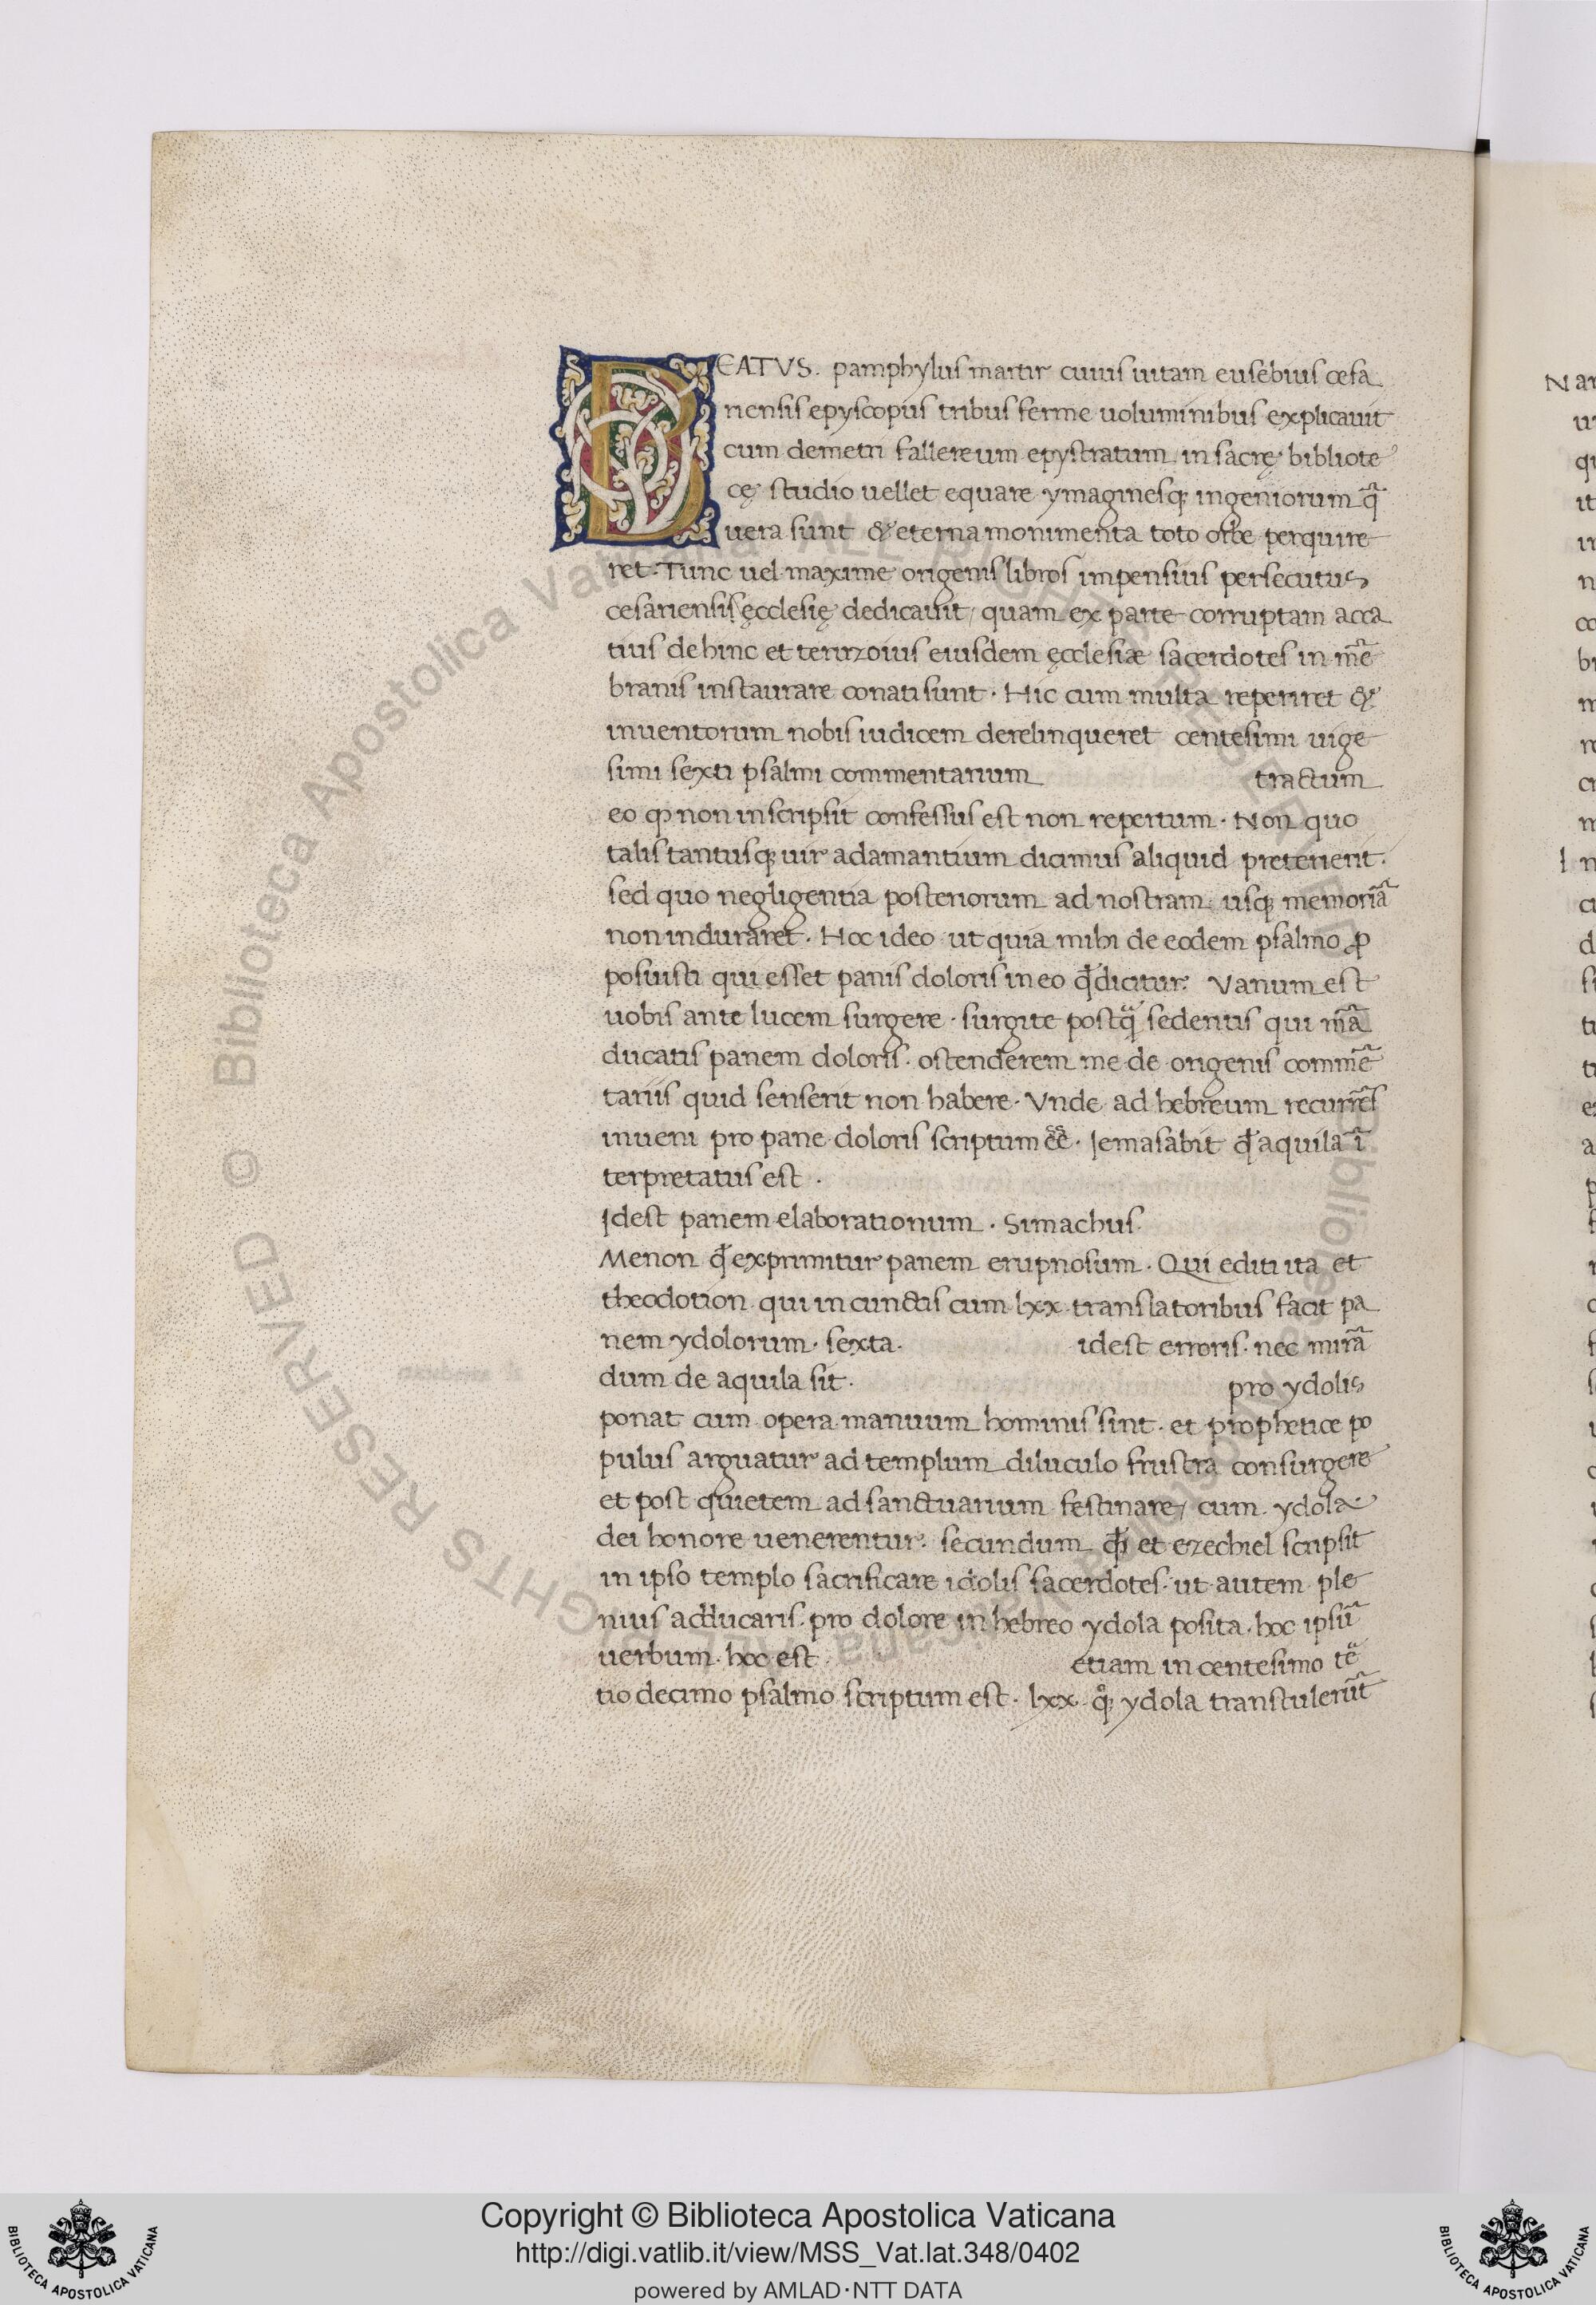 BEATVS. pamphylus martir cuius uitam eusebius cesa
riensis epyscopus tribus ferme uoluminibus explicauit
cum demetri fallereum epystratum in sacrę bibliote
cę studio uellet equare ymaginesq; ingeniorum q̃
uera sunt & eterna monimenta toto orbe perquire
ret. Tunc uel maxime origenis libros impensius persecutus
cesariensis ęcclesię dedicauit, quam ex parte corruptam acca
tius dehinc et teruzoius eiusdem ęcclesiæ sacerdotes in mẽ
branis instaurare conati sunt. Hic cum multa reperiret &
inuentorum nobis iudicem derelinqueret centesimi uige
simi sexti psalmi commentarium tractum
eo ꝙ non inscripsit confessus est non repertum. Non quo
talis tantusq; uir adamantium dicimus aliquid preterierit.
sed quo negligentia posteriorum ad nostram usq; memoriã
non induraret. Hoc ideo ut quia mihi de eodem psalmo ꝓ
posuisti qui esset panis doloris in eo qđ dicitur. Vanum est
uobis ante lucem surgere. surgite postq̃ sederitis qui mã
ducatis panem doloris. ostenderem me de origenis commẽ
tariis quid senserit non habere. Vnde ad hebreum recurrẽs
inueni pro pane doloris scriptum eẽ. Iemasabit qđ aquila ĩ
terpretatus est.
Idest panem elaborationum. Simachus.
Menon qđ exprimitur panem erupnosum. Qui editi ita et
theodotion qui in cunctis cum lxx translatoribus facit pa
nem ydolorum. sexta. idest erroris. nec mirã
dum de aquila sit. pro ydolis
ponat cum opera manuum hominis sint. et prophetice po
pulus arguatur ad templum diluculo frustra consurgere
et post quietem ad sanctuarium festinare, cum ydola
dei honore uenerentur. secundum qđ et ezechiel scripsit
in ipso templo sacrificare idolis sacerdotes. ut autem ple
nius adducaris. pro dolore in hebreo ydola posita. hoc ipsũ
uerbum. hoc est. etiam in centesimo tẽ
tio decimo psalmo scriptum est. lxx. qͦ; ydola transtulerũt
© Biblioteca Apostolica Vaticana ALL RIGHTS RESERVED
Copyright © Biblioteca Apostolica Vaticana
http://digi.vatlib.it/view/MSS_Vat.lat.348/0402
powered by AMLAD·NTT DATA
BIBLIOTECA APOSTOLICA VATICANA
BIBLIOTECA APOSTOLICA VATICANA